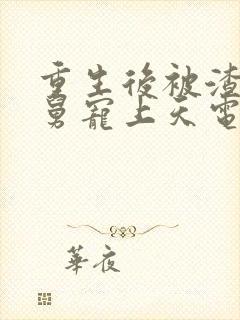 重生後被渣
舅寵上天電
華夜